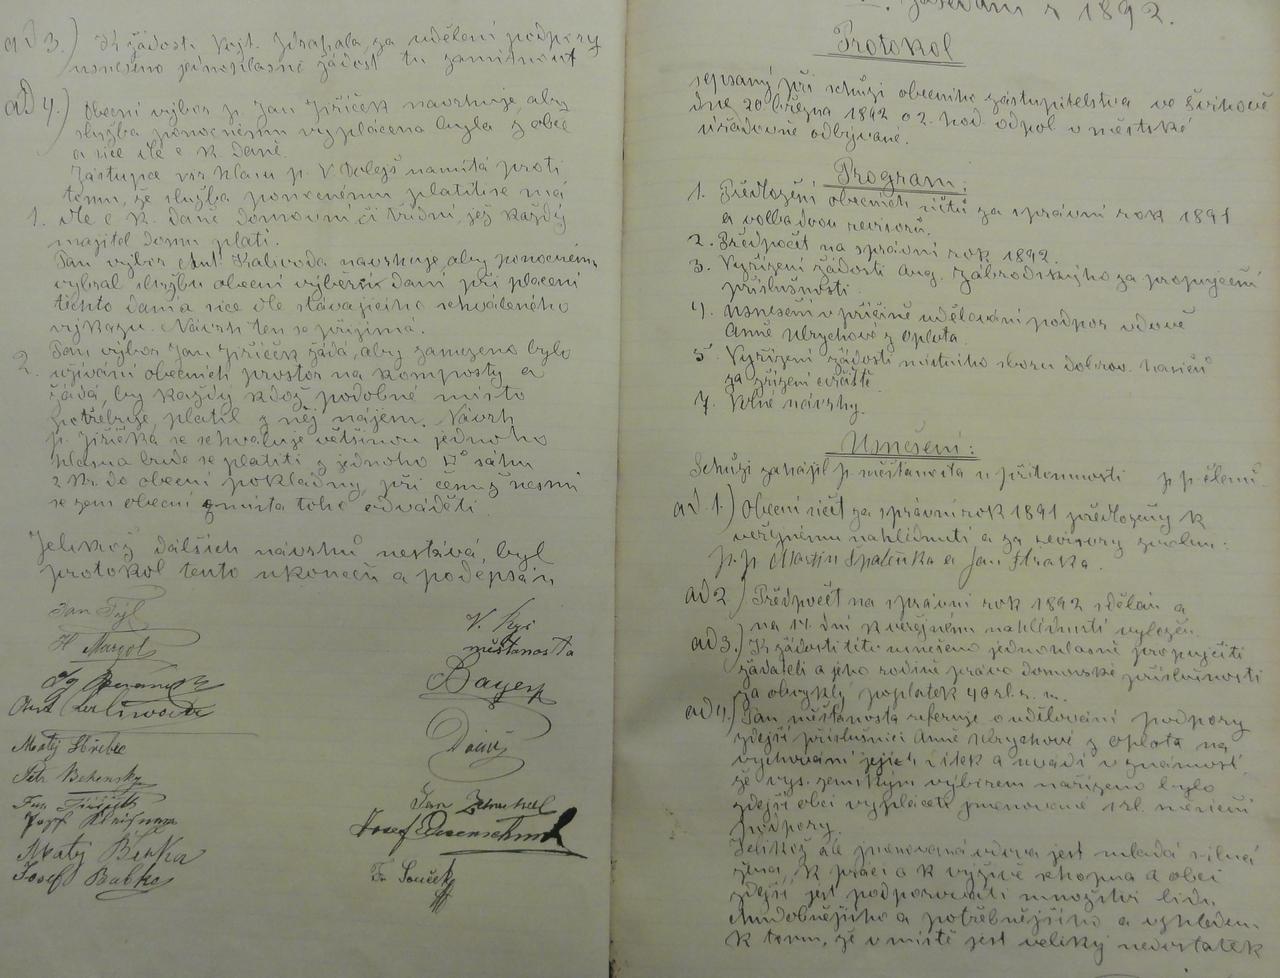 ad 3.) K žádosti Vojt. Zdrahala, za udělení podpory
usnešeno jednohlasně žádost tu zamítnout
ad 4.) Obecní výbor p. Jan Jiříček navrhuje, aby
služba ponocnému vyplácena byla z obce
a sice dle c. k. daně.
Zástupce p. V Dolejš namítá proti
tomu, že služba ponocnému platiti se má
1. dle c. k. daně domovní či třídní, jež každý
majitel domu platí.
Pan výbor Ant. Kalivoda navrhuje, aby ponocnému
vybíral službu obecní výběrčí daní při placení
těchto daní a sice dle stávajícího schváleného
výkazu. Návrh ten se přijímá.
2. Pan výbor Jan Jiříček žádá, aby zamezeno bylo
užívání obecních prostor na komposty a
žádá, by každý kdož podobné místo
potřebuje, platil z něj nájem. Návrh
p. Jiříčka se schvaluje většinou jednoho
hlasu bude se platiti z jednoho □° sáhu
2 kr. do obecní pokladny, při čemž nesmí
se zem obecní z místa toho odváděti.
Jelikož dalších návrhů nestává, byl
protokol tento ukončen a podepsán
Jan Týl
H Margol
V. Kyš
měštanosta
Bayer
Ant Kalivoda
Matěj Stříbec
Petr
Dolejš
Jan
Josef
Matěj Birka
Josef Babka
Josef Eisenschiml
Fr. Souček
zasedání r 1892.
Protokol
sepsaný při schůzi obecního zastupitelstva ve Švihově
dne 20 března 1892 o 2. hod. odpol. v městské
úřadovně odbývané.
Program:
1. Předložení obecních účtů za správní rok 1891
a volba dvou revisorů.
2. Předpočet na správní rok 1892.
3. Vyřízení žádosti Aug. Zábrodského za propůjčení
příslušnosti.
4. Usnešení v příčině udělování podpor vdově
Anně Ulrychové z Oplota.
5. Vyřízení žádosti místního sboru dobrov. hasičů
za zřízení cvičiště
7. Volné návrhy.
Usnešení:
Schůzi zahájil p. měštanosta u přítomnosti p. p. členů.
ad. 1.) Obecní účet za správní rok 1891 předložený k
veřejnému nahlédnutí a za revisory zvolen:
p. p. Martin Spalenka a Jan Straka.
ad 2.) Předpočet na správní rok 1892 sdělán a
na 14. dní k veřejnému nahlédnutí vyložen.
ad 3.) K žádosti této usnešeno jednohlasně propůjčiti
žadateli a jeho rodině právo domovské příslušnosti
za obvyklý poplatek 40 zl. r. m.
ad 4.) Pan měštanosta referuje o udělování podpory
zdejší příslušnici Anně Ulrychové z Oplota na
vychování jejích dítek a uvádí v známost
že vys. zemským výborem nařízeno bylo
zdejší obci vypláceti jmenované 1 zl. měsíční
podpory.
Jelikož ale jmenovaná vdova jest mladá silná
žena, k práci a k výživě schopna a obci
zdejší jest podporovati množství lidu
chudobnějšího a potřebnějšího a vzhledem
k tomu, že v místě jest veliký nedostatek